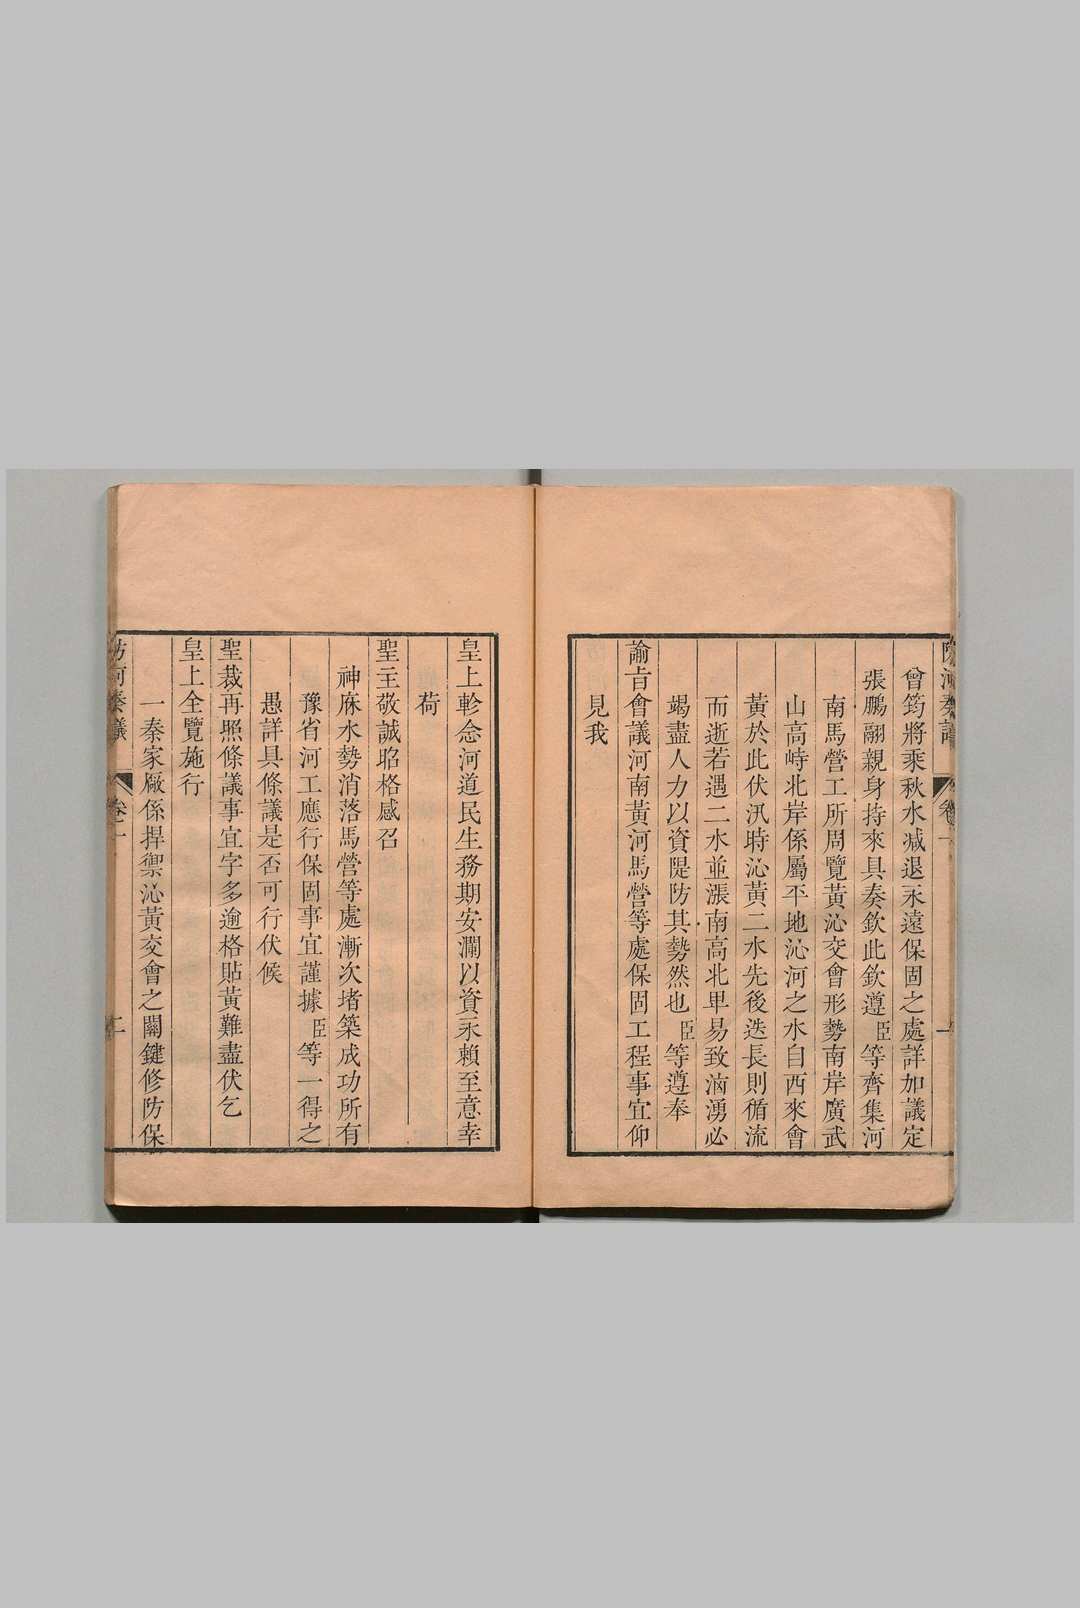 防河奏議
卷一
一
曾筠將乘秋水減退永遠保固之處詳加議定
張鵬翮親身持來具奏欽此欽遵臣等齊集河
南馬營工所周覽黃沁交會形勢南岸廣武
山高峙北岸係屬平地沁河之水自西來會
黃於此伏汛時沁黃二水先後迭長則循流
而逝若遇二水並漲南高北卑易致滷湧必
竭盡人力以資隄防其勢然也臣等遵奉
諭旨會議河南黃河馬營等處保固工程事宜仰
見我
皇上軫念河道民生務期安瀾以資永賴至意幸
荷
聖主敬誠昭格感召
神庥水勢消落馬營等處漸次堵築成功所有
豫省河工應行保固事宜謹據臣等一得之
愚詳具條議是否可行伏候
聖裁再照條議事宜字多逾格貼黃難盡伏乞
皇上全覽施行
一秦家厰係捍禦沁黃交會之關鍵修防保
防河奏議
卷一
二